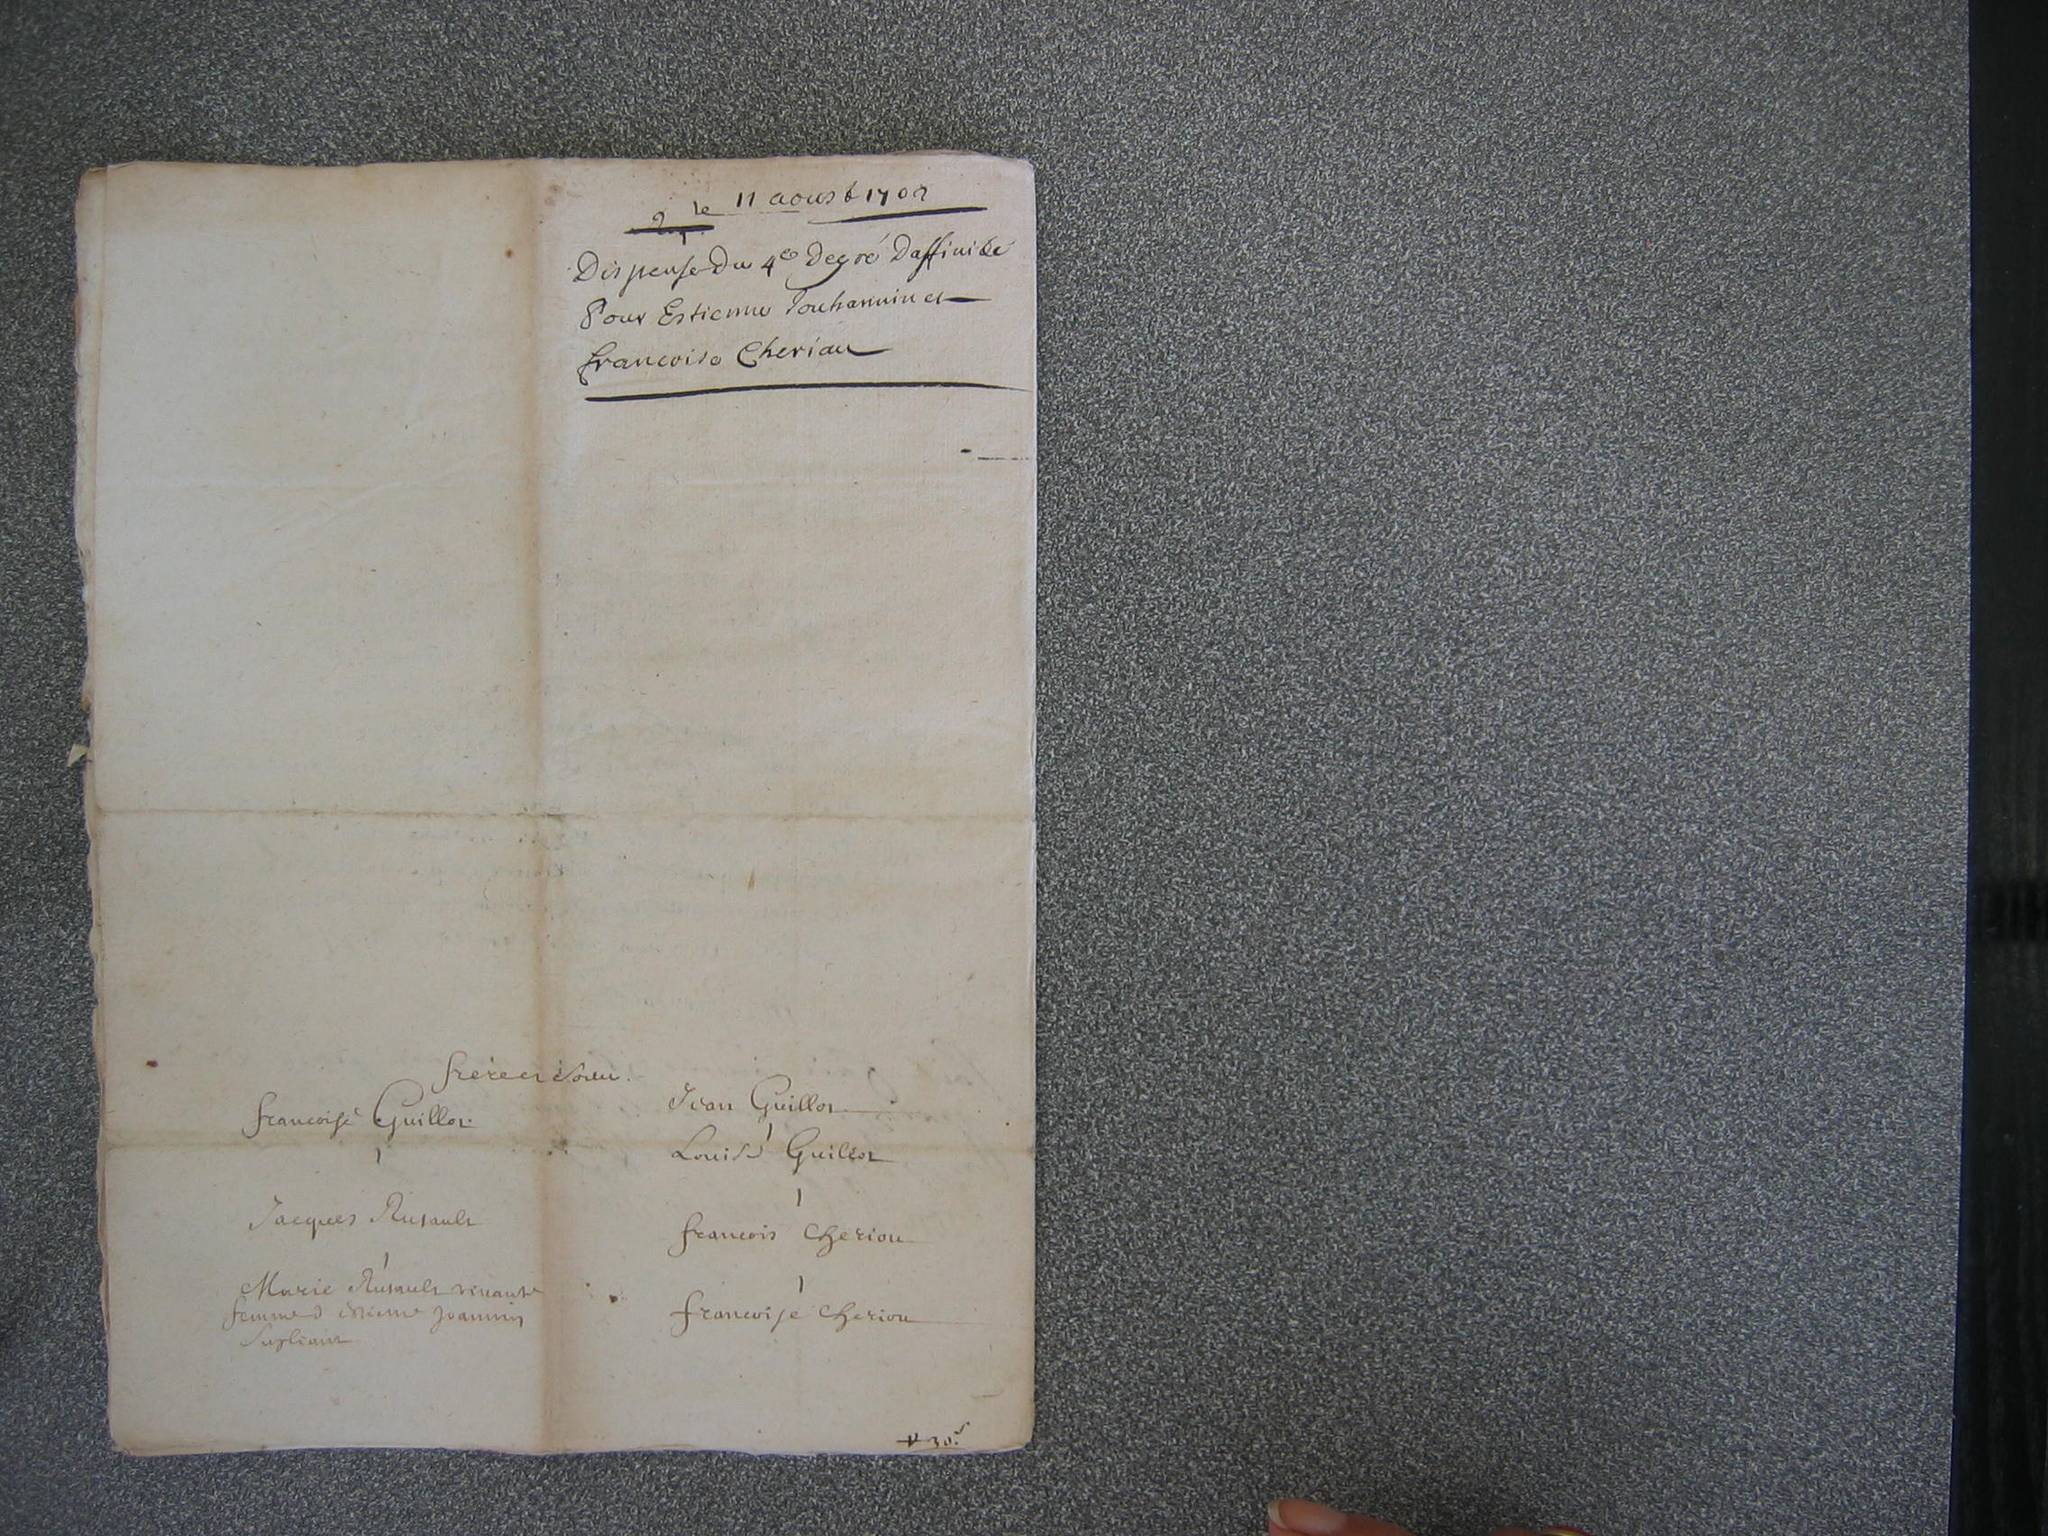 le 11 aoust 1702
Dispense Du 4e Degré Daffinité
Pour Estienne Jouhannin et
francoise Cheriau
frere et soeur
francoise Guillot
Jean Guillot
Louise Guillot
Jacques Rusault
francois cheriou
Marie Rusault vivante
femme d estienne Joannin
supliant
francoise cheriou
30s